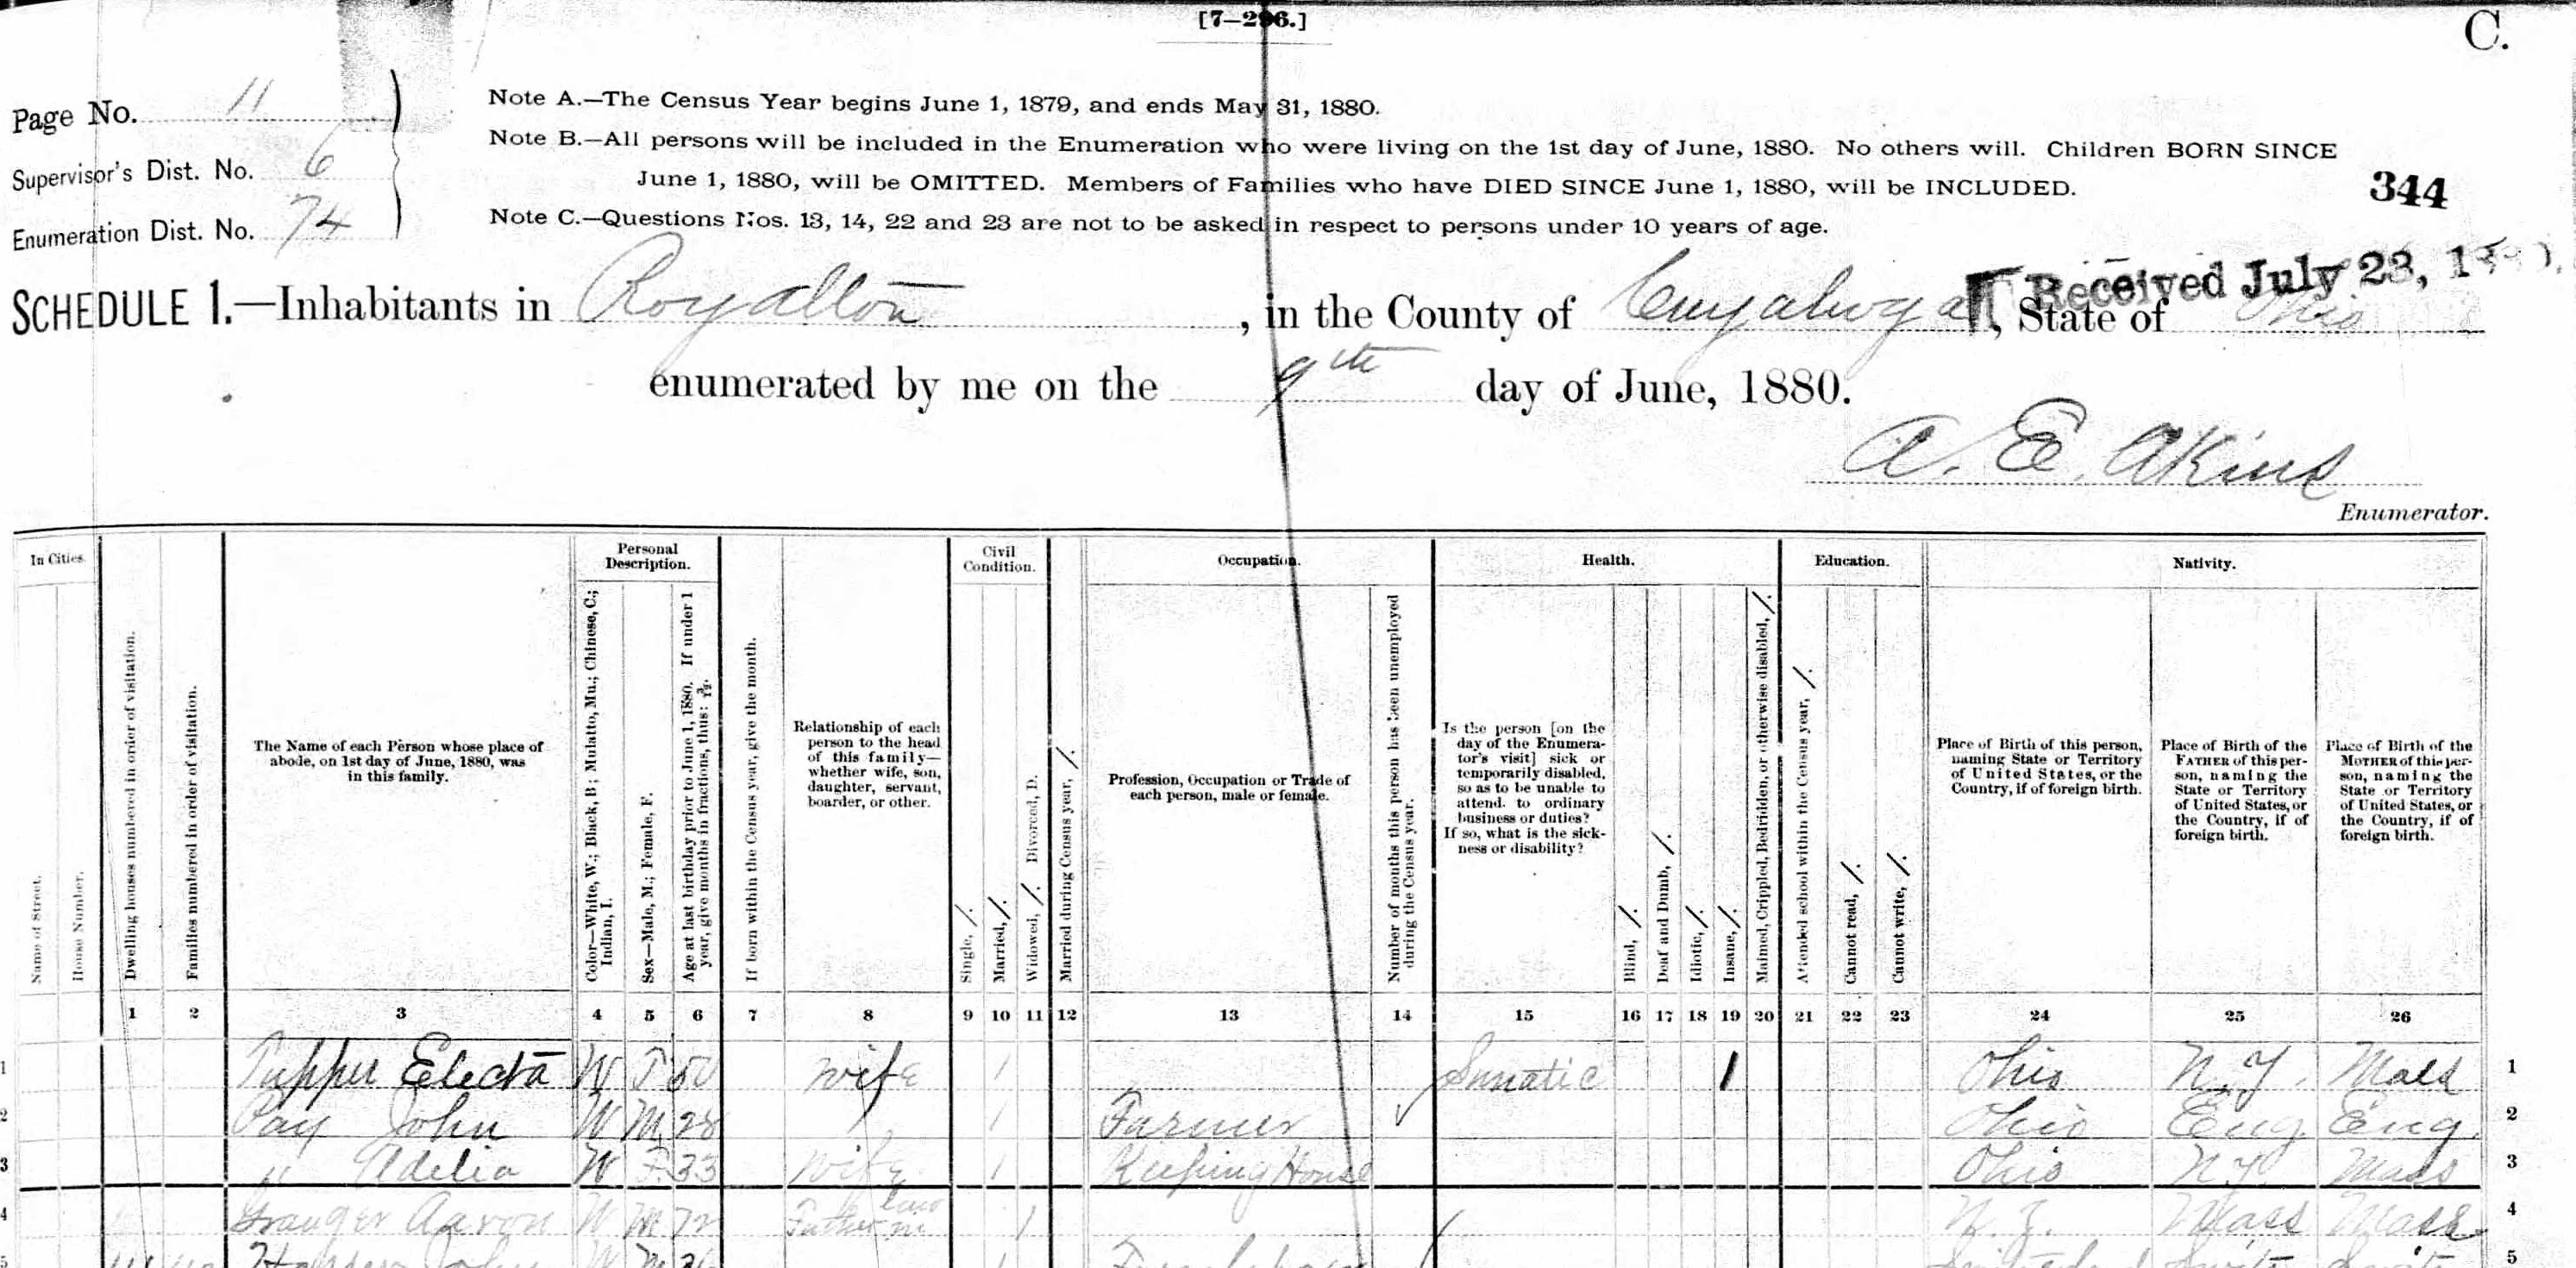 [7—296.]
C.
Page No. 11
Supervisor's Dist. No. 6
Enumeration Dist. No. 74
Note A.—The Census Year begins June 1, 1879, and ends May 31, 1880.
Note B.—All persons will be included in the Enumeration who were living on the 1st day of June, 1880. No others will. Children BORN SINCE
June 1, 1880, will be OMITTED. Members of Families who have DIED SINCE June 1, 1880, will be INCLUDED.
Note C.—Questions Nos. 13, 14, 22 and 23 are not to be asked in respect to persons under 10 years of age.
344
Received July 23,
SCHEDULE 1.—Inhabitants in Royalton, in the County of Cuyahoga, State of Ohio
enumerated by me on the 9th day of June, 1880.
A. E. Akins
Enumerator.
In Cities.
Personal Description.
Civil Condition.
Occupation.
Health.
Education.
Nativity.
Name of Street.
House Number.
Dwelling houses numbered in order of visitation.
Families numbered in order of visitation.
The Name of each Person whose place of
abode, on 1st day of June, 1880, was
in this family.
Color—White, W.; Black, B.; Mulatto, Mu.; Chinese, C.;
Indian, I.
Sex—Male, M.; Female, F.
Age at last birthday prior to June 1, 1880. If under 1
year, give months in fractions, thus: 3/12.
If born within the Census year, give the month.
Relationship of each
person to the head
of this family—
whether wife, son,
daughter, servant,
boarder, or other.
Single, /.
Married, /.
Widowed, /. Divorced, D.
Married during Census year, /.
Profession, Occupation or Trade of
each person, male or female.
Number of months this person has been unemployed
during the Census year.
Is the person [on the
day of the Enumera-
tor's visit] sick or
temporarily disabled,
so as to be unable to
attend to ordinary
business or duties?
If so, what is the sick-
ness or disability?
Blind, /.
Deaf and Dumb, /.
Idiotic, /.
Insane, /.
Maimed, Crippled, Bedridden, or otherwise disabled, /.
Attended school within the Census year, /.
Cannot read, /.
Cannot write, /.
Place of Birth of this person,
naming State or Territory
of United States, or the
Country, if of foreign birth.
Place of Birth of the
FATHER of this per-
son, naming the
State or Territory
of United States, or
the Country, if of
foreign birth.
Place of Birth of the
MOTHER of this per-
son, naming the
State or Territory
of United States, or
the Country, if of
foreign birth.
1 2 3 4 5 6 7 8 9 10 11 12 13 14 15 16 17 18 19 20 21 22 23 24 25 26
1 Tupper Electa W F 50 wife / Lunatic 1 Ohio N.Y. Mass 1
2 John W M 28 / Farmer Ohio Eng. Eng. 2
3 " Adelia W F 33 Wife / Keeping House Ohio N.Y. Mass 3
4 Granger Aaron W M 72 Father in law / N.Y. Mass Mass 4
5 John W M / 5